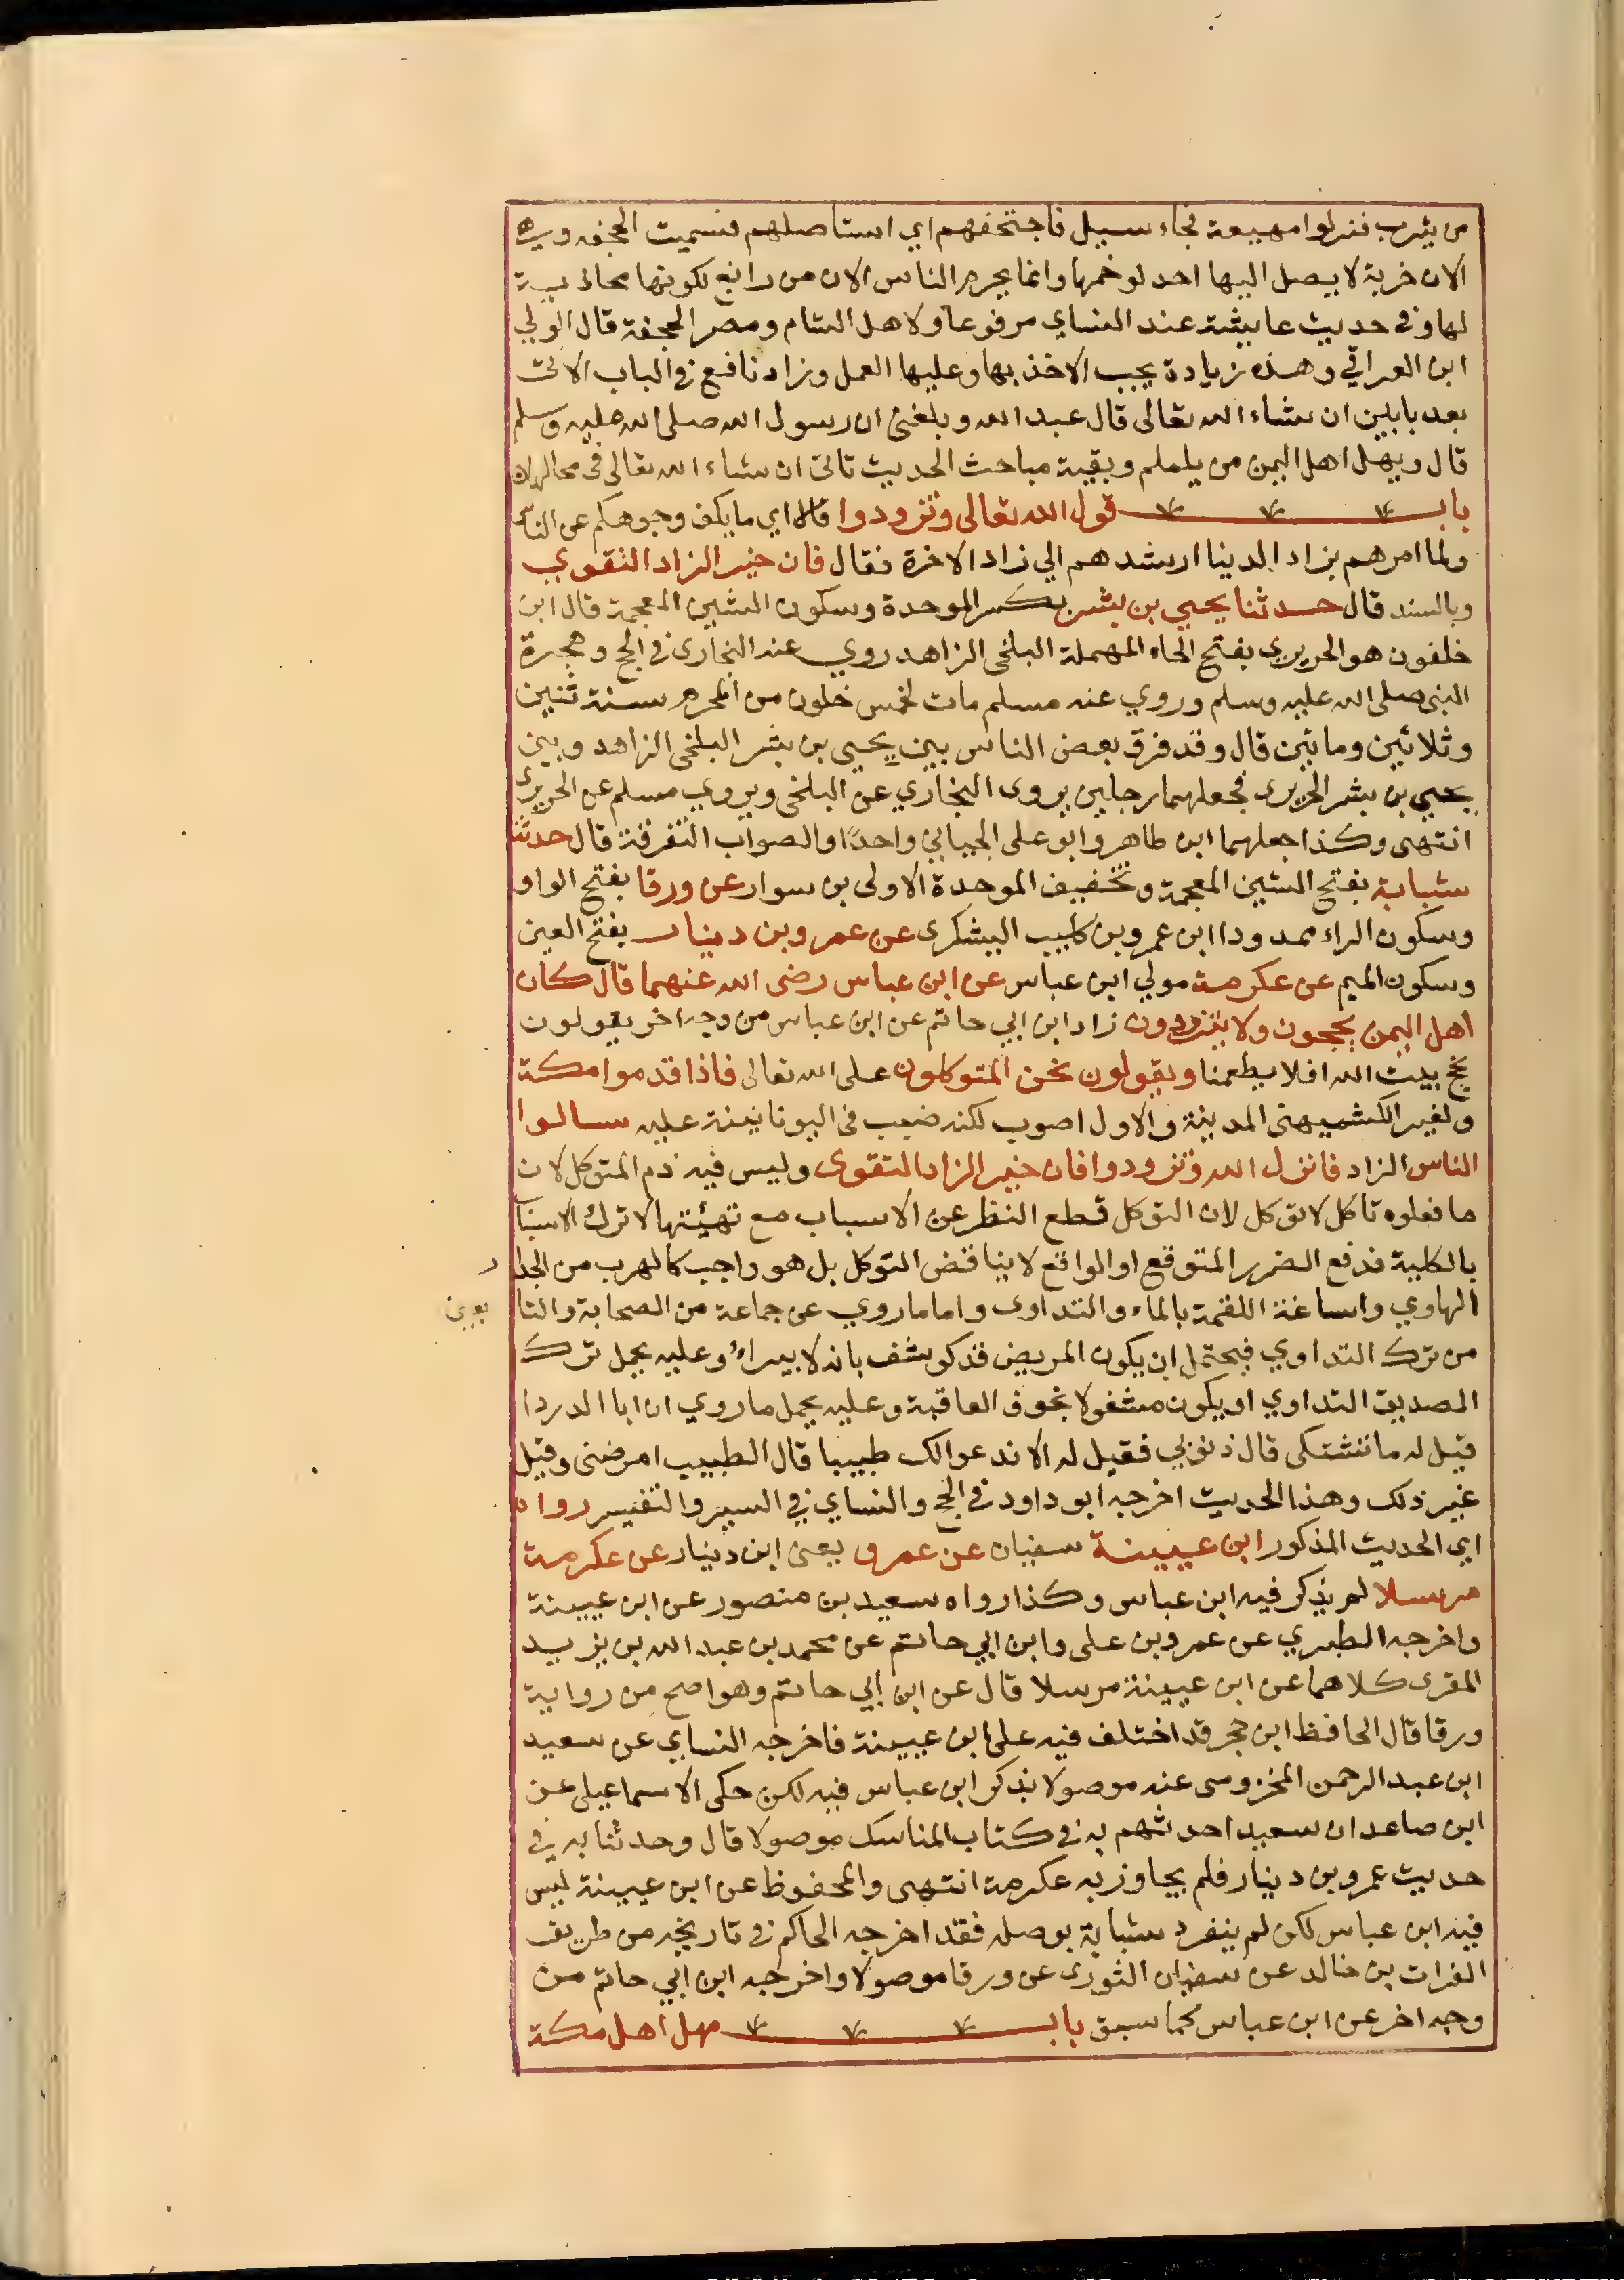 من يثرب فنزلوا مهيعة فجاء سيل فاجتحفهم اي استاصلهم فسميت الجحفه وهي
الان خربة لا يصل اليها احد لوخمها وانما يحرم الناس الان من رابغ لكونها محاذية
لها وفي حديث عايشة عند النساي مرفوعا ولاهل الشام ومصر الجحفة قال الولي
ابن العراقي وهذه زيادة يجب الاخذ بها وعليها العمل وزاد نافع في الباب الاتي
بعد بابين ان شاء الله تعالى قال عبد الله وبلغني ان رسول الله صلى الله عليه وسلم
قال ويهل اهل اليمن من يلملم وبقية مباحث الحديث تاتي ان شاء الله تعالى في محالها
باب قول الله تعالى وتزودوا اي ما يكف وجوهكم عن الناس
ولما امرهم بزاد الدنيا ارشدهم الي زاد الاخرة فقال فان خير الزاد التقوي
وبالسند قال حدثنا يحيي بن بشر بكسر الموحدة وسكون الشين المعجمة قال ابن
خلفون هو الحريري بفتح الحاء المهملة البلخي الزاهد روي عنه البخاري في الحج وهجرة
النبي صلى الله عليه وسلم وروي عنه مسلم مات لخمس خلون من المحرم سنة ثنين
وثلاثين ومايتين قال وقد فرق بعض الناس بين يحيي بن بشر البلخي الزاهد وبين
يحيي بن بشر الحريري فجعلهما رجلين يروى البخاري عن البلخي ويروي مسلم عن الحريري
انتهى وكذا جعلهما ابن طاهر وابو على الجياني واحدًا والصواب التفرقة قال حدثنا
شبابة بفتح الشين المعجمة وتخفيف الموحدة الاولى بن سوار عن ورقا بفتح الواو
وسكون الراء ممدودا ابن عمرو بن كليب اليشكرى عن عمرو بن دينار بفتح العين
وسكون الميم عن عكرمة مولي ابن عباس عن ابن عباس رضى الله عنهما قال كان
اهل اليمن يحجون ولا يتزودون زاد ابن ابي حاتم عن ابن عباس من وجه اخر يقولون
نحج بيت الله افلا يطعمنا ويقولون نحن المتوكلون على الله تعالى فاذا قدموا مكة
ولغير الكشميهني المدينة والاول اصوب لكنه ضبب في اليونانينة عليه سالوا
الناس الزاد فانزل الله وتزودوا فان خير الزاد التقوى وليس فيه ذم المتوكل لان
ما فعلوه تاكل لا توكل لان التوكل قطع النظر عن الاسباب مع تهيئتها لا ترك الاسباب
بالكلية فدفع الضرر المتوقع او الواقع لا يناقض التوكل بل هو واجب كالهرب من الجدار
الهاوي واساغة اللقمة بالماء والتداوى واما ما روي عن جماعة من الصحابة والتا بعين
من ترك التداوي فيحتمل ان يكون المريض قد كوشف بانه لا يبراء وعليه يحمل ترك
الصديق التداوي او يكون مشغولا بخوف العاقبة وعليه يحمل ما روي ان ابا الدردا
قيل له ما تشتكى قال ذنوبي فقيل له الا ندعو الك طبيبا قال الطبيب امرضنى وقيل
غير ذلك وهذا الحديث اخرجه ابو داود في الحج والنساي في السير والتفيسر رواه
اي الحديث المذكور ابن عيينة سفيان عن عمرو يعنى ابن دينار عن عكرمة
مرسلا لم يذكر فيه ابن عباس وكذا رواه سعيد بن منصور عن ابن عيينة
واخرجه الطبري عن عمرو بن على وابن ابي حاتم عن محمد بن عبد الله بن يزيد
المقرى كلاهما عن ابن عيينة مرسلا قال عن ابن ابي حاتم وهو اصح من رواية
ورقا قال الحافظ ابن حجر قد اختلف فيه على ابن عيينة فاخرجه النساي عن سعيد
ابن عبد الرحمن المخزومى عنه موصولا بذكر ابن عباس فيه لكن حكى الاسماعيلى عن
ابن صاعد ان سعيدا حدثهم به في كتاب المناسك موصولا قال وحدثنا به في
حديث عمرو بن دينار فلم يجاوز به عكرمة انتهى والمحفوظ عن ابن عيينة ليس
فيه ابن عباس لكن لم ينفرد شبابة بوصله فقد اخرجه الحاكم في تاريخه من طريق
الفرات بن خالد عن سفيان الثورى عن ورقا موصولا واخرجه ابن ابي حاتم من
وجه اخر عن ابن عباس كما سبق باب مهل اهل مكة